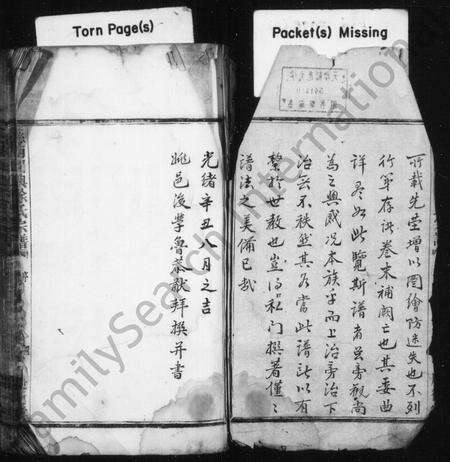 Torn Page(s)
Packet(s) Missing
所載先塋增以圖繪防迷失也不列
行第存諸卷末補闕亡也其委曲
詳盡如此覽斯譜者吳旁觀尚
為之興感况本族乎而上治旁治下
治無不秩然其各當此譜訖以有
繫於世教也豈得私門撰著僅〻
譜法之美備已哉
光緒辛丑八月之吉
姚邑後學魯恭獻拜撰并書
FamilySearch International